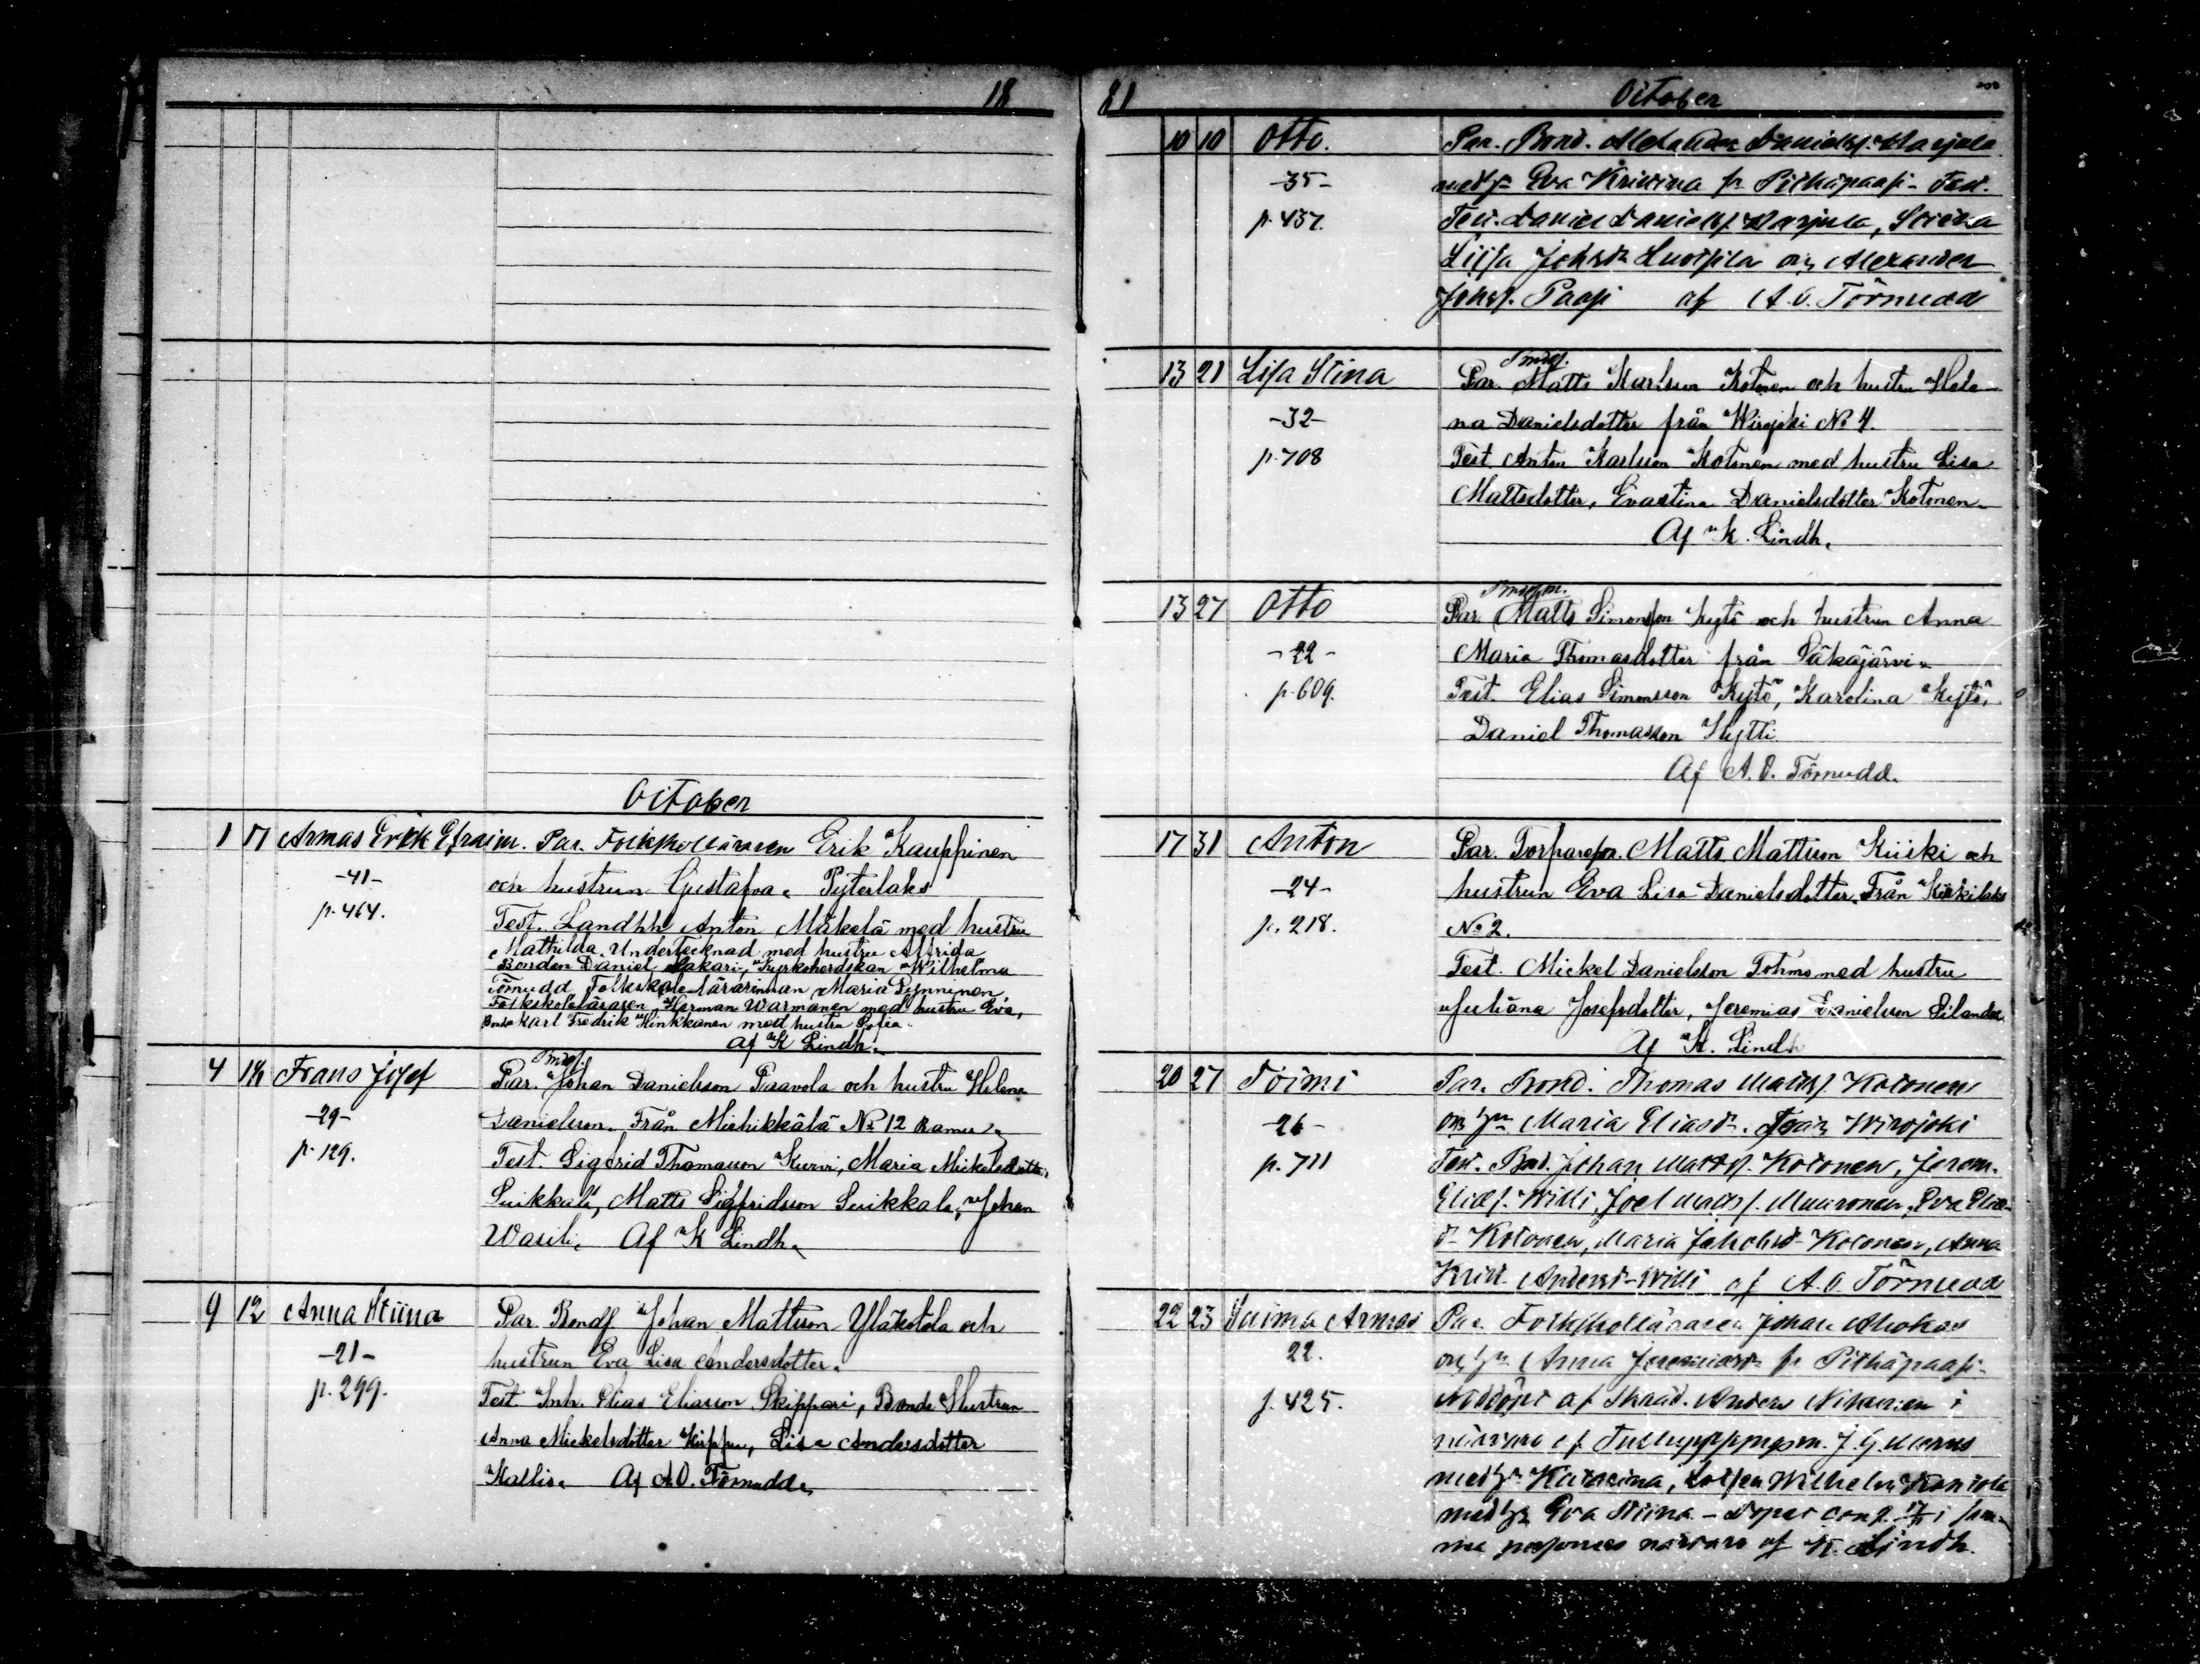 18
October
1 17 Armas Erik Efraim. Par. Folkskolläraren Erik Kauppinen
-41- och hustrun Gustafva. Pyterlaks
p. 464. Test. Landhh Anton Mäkelä med hustru
Mathilda. Undertecknad med hustru Alfrida
Bonden Daniel Sakari, Kyrkoherdskan Wilhelma
Törnudd, Folkskolelärarinnan Maria Lynninen
Folkskoleläraren Herman Warmanen med hustru Eva,
Bonde Karl Fredrik Hinkkanen med hustru Sofia.
Af K Lindh.
Smdf.
4 Frans Josef Par. Johan Danielsson Paavola och hustru Helena
-29- Danielsson. Från Miehikkälä No 12
p. 129. Test. Sigfrid Thomasson Kurvi, Maria Mickelsdotter
Suikkala, Matts Sigfridsson Suikkala, Johan
Wasili. Af K Lindh.
9 12 Anna Stiina Par. Bondf Johan Mattsson Yläkotola och
-21- hustrun Eva Lisa Andersdotter.
p. 299. Test. Inh. Elias Eliasson Skippari, Bonde Hustrun
Anna Mickelsdotter Kirppu, Lisa Andersdotter
Kallis. Af A. O. Törnudd.
81 October
10 10 Otto. Par. Bond. Alexander Danielsf. Harjula
-35- med h. Eva Kristina fr Pitkäpaasi - Test.
p. 437. Test. Daniel Danielsf. Harjula, Stiina
Liisa Johsdr Suoipila och Alexander
Johsf. Paasi af A. O. Törnudd
13 21 Lisa Stina Par. Matts Karlsson Kotonen och hustru Hele-
-32- na Danielsdotter från Wirojoki No 4.
p. 708 Test. Anton Karlsson Kotonen med hustru Lisa
Mattsdotter, Evastina Danielsdotter Kotonen.
Af K. Lindh.
13 27 Otto Par. Matts Simonsson Kytö och hustrun Anna
-22- Maria Thomasdotter från Säkäjärvi.
p. 609. Test. Elias Simonsson Kytö, Karolina Kytö,
Daniel Thomasson Hytti.
Af A. O. Törnudd.
17 31 Anton Par. Torpareson. Matts Mattsson Kiiski och
-24- hustrun Eva Lisa Danielsdotter. Från
p. 218. No 2.
Test. Mickel Danielsson Tohmo med hustru
Juliäna Josefsdotter, Jeremias Danielsson Silander
Af K. Lindh
20 27 Toimi Par. Bond. Thomas Mattsf. Kotonen
-26- och hu Maria Eliasdr. från Wirojoki
p. 711 Test. Bond. Johan Mattsf. Kotonen, Jerem.
Eliasf. Willi, Joel Mattsf. Muuronen, Eva Elias-
dr Kotonen, Maria Jakobsdr Kotonen, Anna
Krist. Andersdr Willi af A. O. Törnudd
22 23 Saima Armas Par. Folkskolläraren Johan Ahokas
22. och hu Anna Jeremiasdr fr Pitkäpaasi.
p. 425. Nöddöpt af Skräd. Anders Nikunen i
närvaro af J. G.
med hu Katarina, Lotsen Wilhelm Kontola
med hu Eva Stiina - Dopet conf. i sam-
ma personers närvaro af K. Lindh.